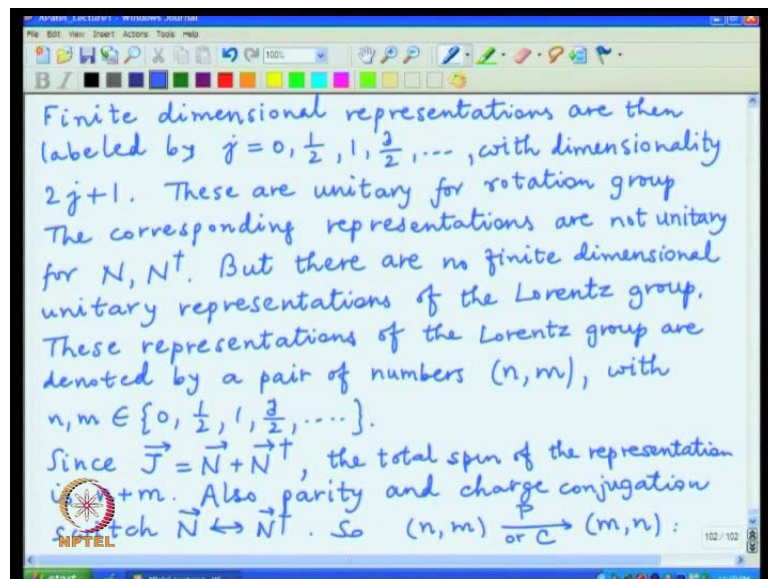 APatel_Lecture1 - Windows Journal
File Edit View Insert Actions Tools Help
100%
B I
Finite dimensional representations are then
labeled by j = 0, 1/2, 1, 3/2, ..., with dimensionality
2j+1. These are unitary for rotation group
The corresponding representations are not unitary
for N, N†. But there are no finite dimensional
unitary representations of the Lorentz group.
These representations of the Lorentz group are
denoted by a pair of numbers (n, m), with
n, m ∈ {0, 1/2, 1, 3/2, ....}.
Since J⃗ = N⃗ + N⃗†, the total spin of the representation
is n+m. Also parity and charge conjugation
switch N⃗ ↔ N⃗†. So (n, m) P or C → (m, n) :
NPTEL
102 / 102
start